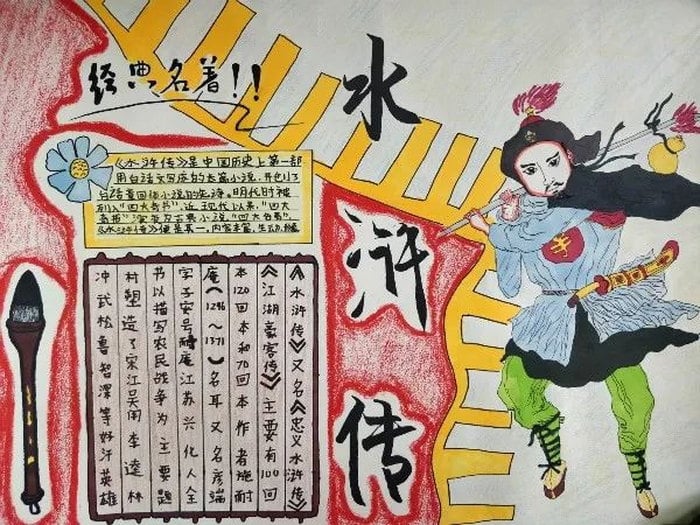 经典名著!!
水浒传
《水浒传》是中国历史上第一部
用白话文写成的长篇小说,开创了
白话章回体小说的先河。明代时被
列入"四大奇书",近、现代以来,"四大
奇书"演变为古典小说"四大名著",
《水浒传》便是其一,内容丰富,生动
《水浒传》又名《忠义水浒传》
《江湖豪客传》主要有100回
本120回本和70回本作者施耐
庵(1296～1371)名耳又名彦端
字子安号耐庵江苏兴化人全
书以描写农民战争为主要题
村塑造了宋江吴用李逵林
冲武松鲁智深等好汉英雄